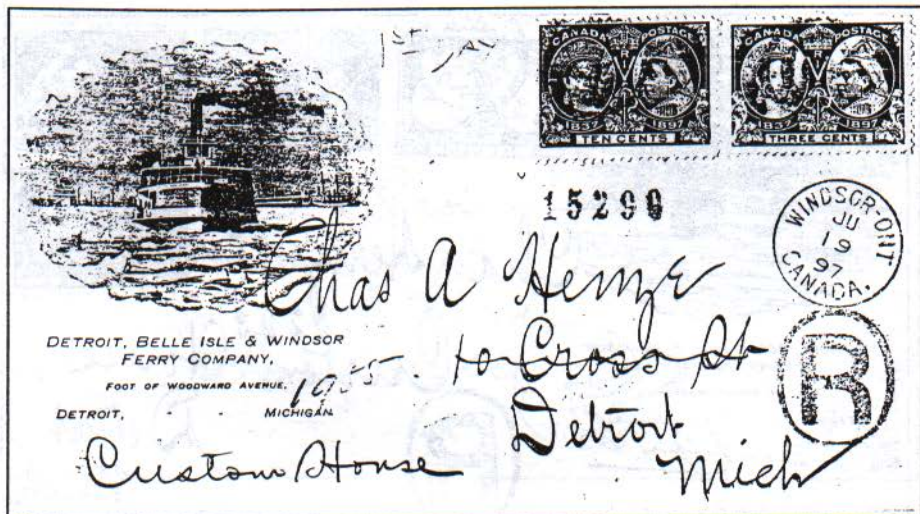 1st
CANADA POSTAGE
1837 1897
TEN CENTS
CANADA POSTAGE
1837 1897
THREE CENTS
15290
WINDSOR-ONT
JU
19
97
CANADA.
R
Chas A
10 Cross St
Detroit
Mich
DETROIT, BELLE ISLE & WINDSOR
FERRY COMPANY,
FOOT OF WOODWARD AVENUE,
DETROIT, - - MICHIGAN
1955
Custom House